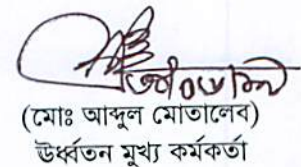 (মোঃ আব্দুল মোতালেব)
ঊর্ধ্বতন মুখ্য কর্মকর্তা